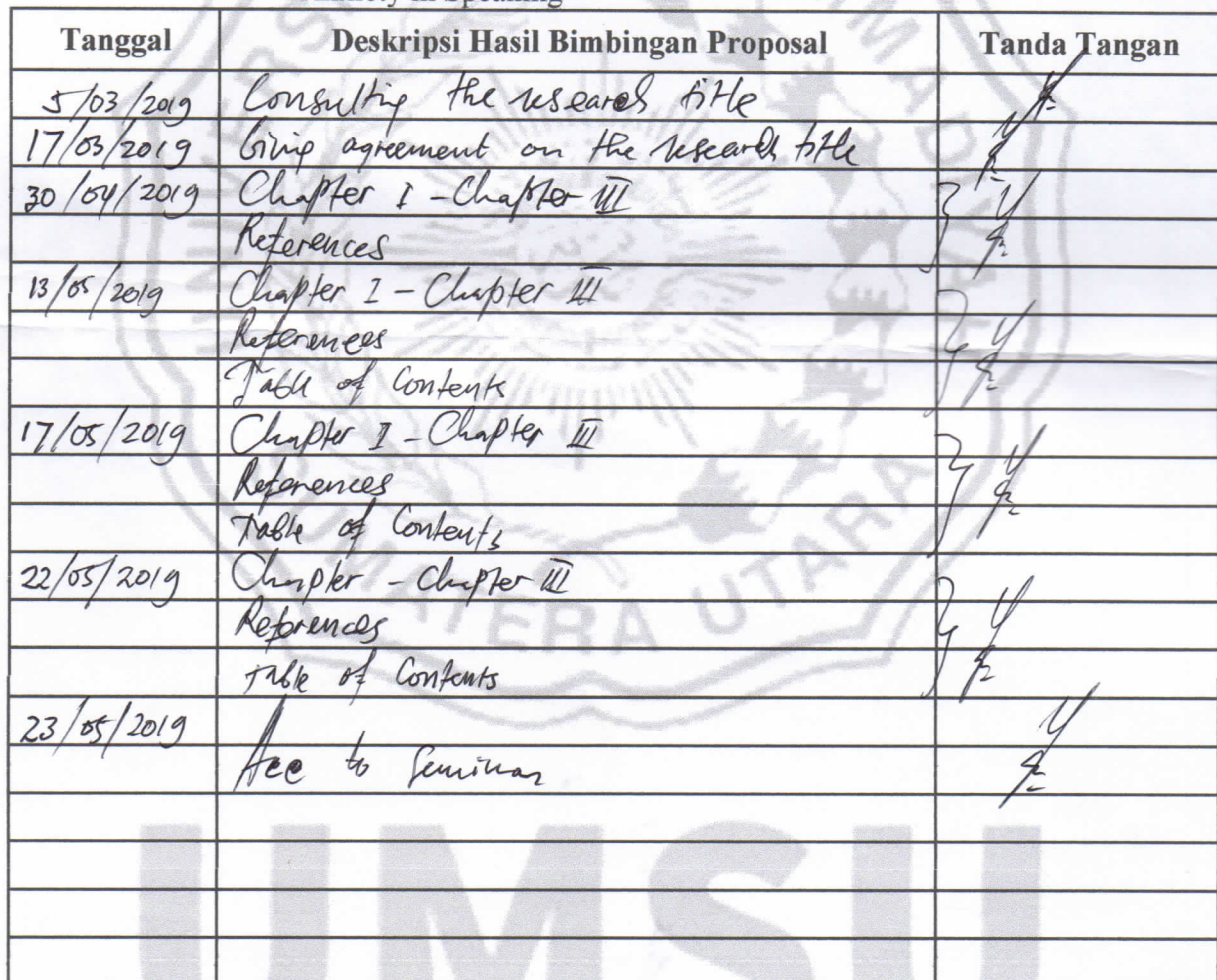 Anxiety in Speaking
Tanggal Deskripsi Hasil Bimbingan Proposal Tanda Tangan
5/03/2019 Consulting the research title
17/03/2019 Giving agreement on the research title
30/04/2019 Chapter I - Chapter III
References
13/05/2019 Chapter I - Chapter III
References
Table of Contents
17/05/2019 Chapter I - Chapter III
References
Table of Contents
22/05/2019 Chapter - Chapter III
References
Table of Contents
23/05/2019
Acc to Seminar
SUMATERA UTARA
UMSU